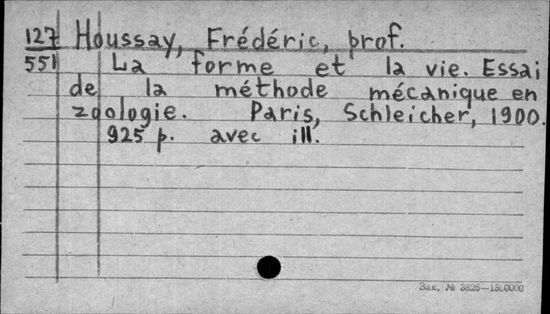 127 Houssay, Frédéric, prof.
551 La forme et la vie. Essai
de la méthode mécanique en
zoologie. Paris, Schleicher, 1900.
925 p. avec ill.
Зак. № 3826—15.0000